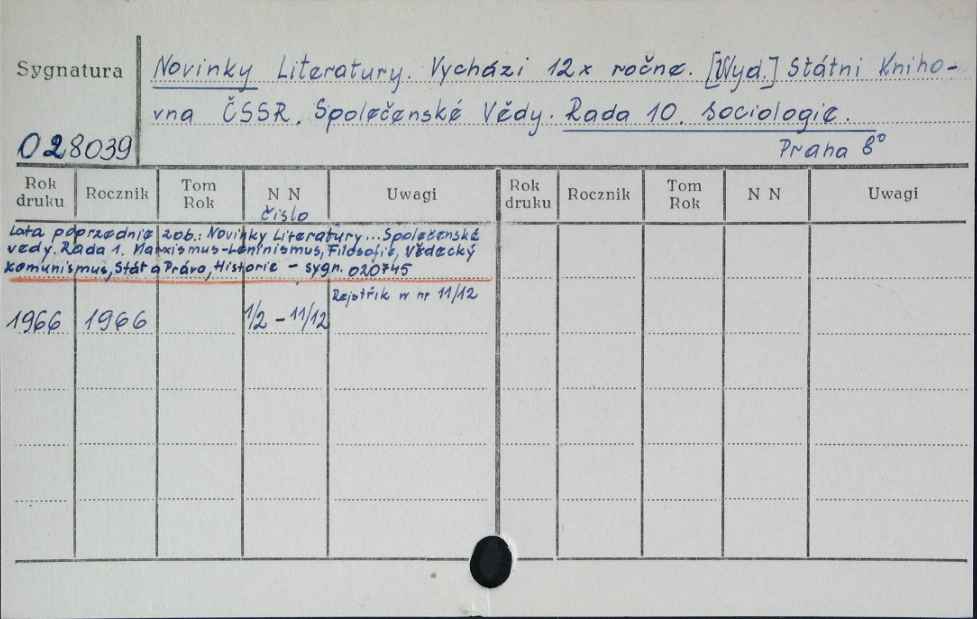 Sygnatura
028039
Novinky Literatury. Vychází 12x ročne. [Wyd.] Státni Kniho-
vna ČSSR. Společenské Vědy. Rada 10. Sociologie.
Praha 8°
Rok druku Rocznik Tom Rok N N Uwagi Rok druku Rocznik Tom Rok N N Uwagi
číslo
Lata poprzednie zob.: Novinky Literatury... Společenské
vedy. Rada 1. Marxismus-Leninismus, Filosofie, Vědecký
komunismus, Stát a Právo, Historie - sygn. 020745
Rejstřík w nr 11/12
1966 1966 1/2 - 11/12